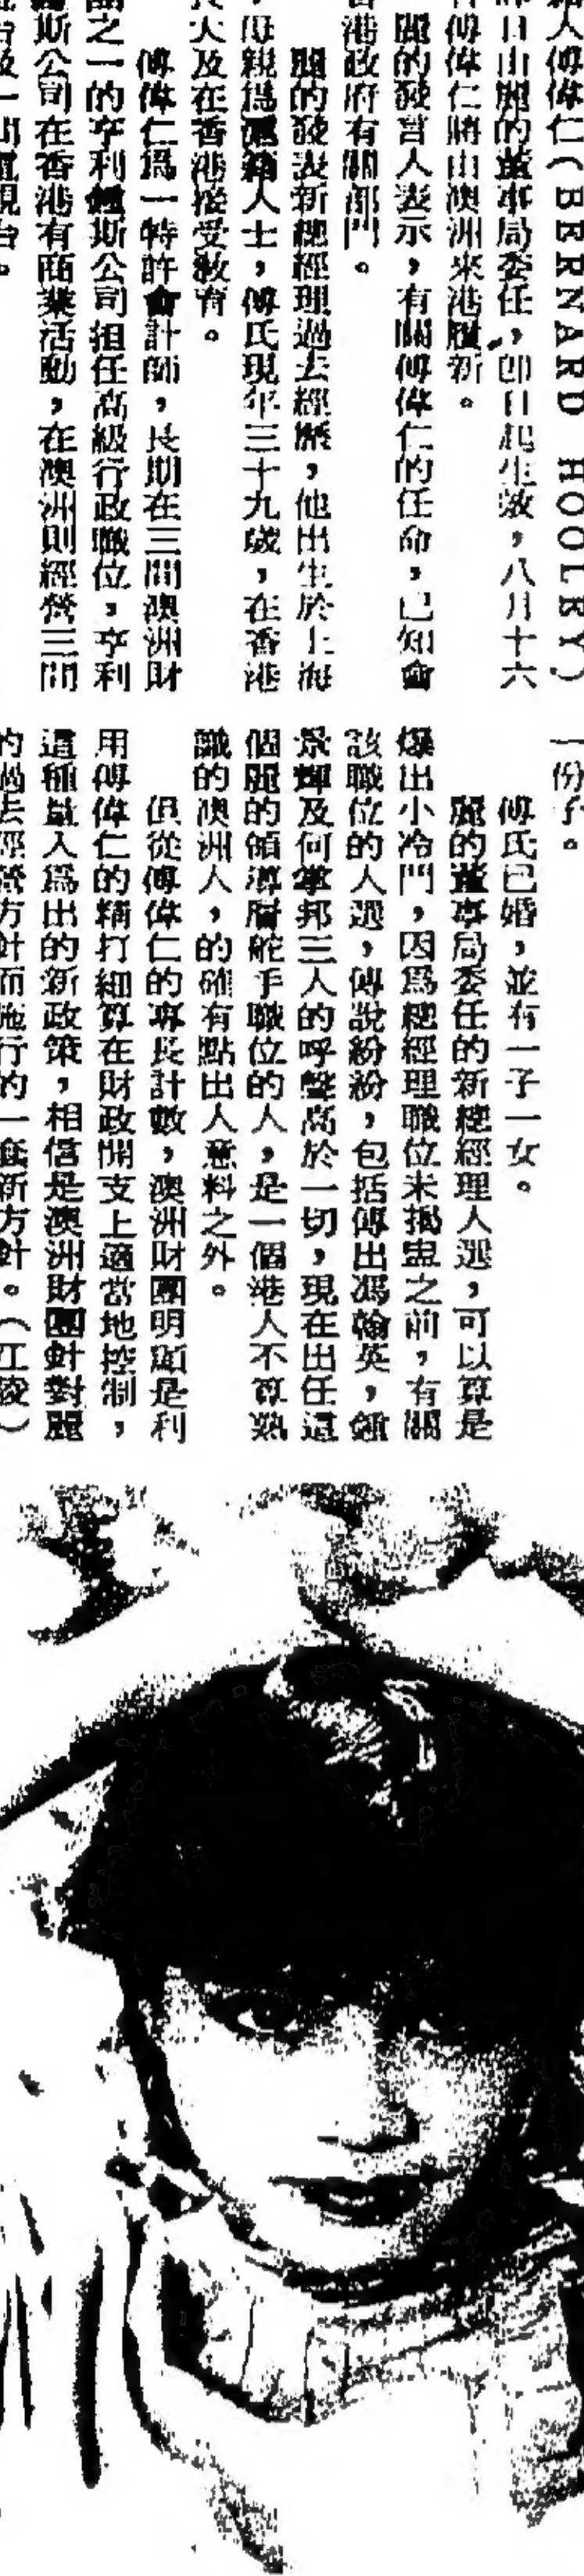 人傅偉仁(BERNARD HOOLEY)
昨日由麗的董事局委任，即日起生效，八月十六
傅偉仁將由澳洲來港履新。
麗的發言人表示，有關傅偉仁的任命，已知會
香港政府有關部門。
麗的發表新總經理過去經歷，他出生於上海
，母親為滬籍人士，傅氏現年三十九歲，在香港
長大及在香港接受教育。
傅偉仁為一特許會計師，長期在三間澳洲財
團之一的亨利鍾斯公司担任高級行政職位，亨利
鍾斯公司在香港有商業活動，在澳洲則經營三間
電台及一間電視台。
一份子。
傅氏已婚，並有一子一女。
麗的董事局委任的新總經理人選，可以算是
爆出小冷門，因為總經理職位未揭盅之前，有關
該職位的人選，傳說紛紛，包括傳出馮翰英，鍾
景輝及何掌邦三人的呼聲高於一切，現在出任這
個麗的領導層舵手職位的人，是一個港人不算熟
識的澳洲人，的確有點出人意料之外。
但從傅偉仁的專長計數，澳洲財團明顯是利
用傅偉仁的精打細算在財政開支上適當地控制，
這種量入為出的新政策，相信是澳洲財團針對麗
的過去經營方針而施行的一套新方針。（江陵）